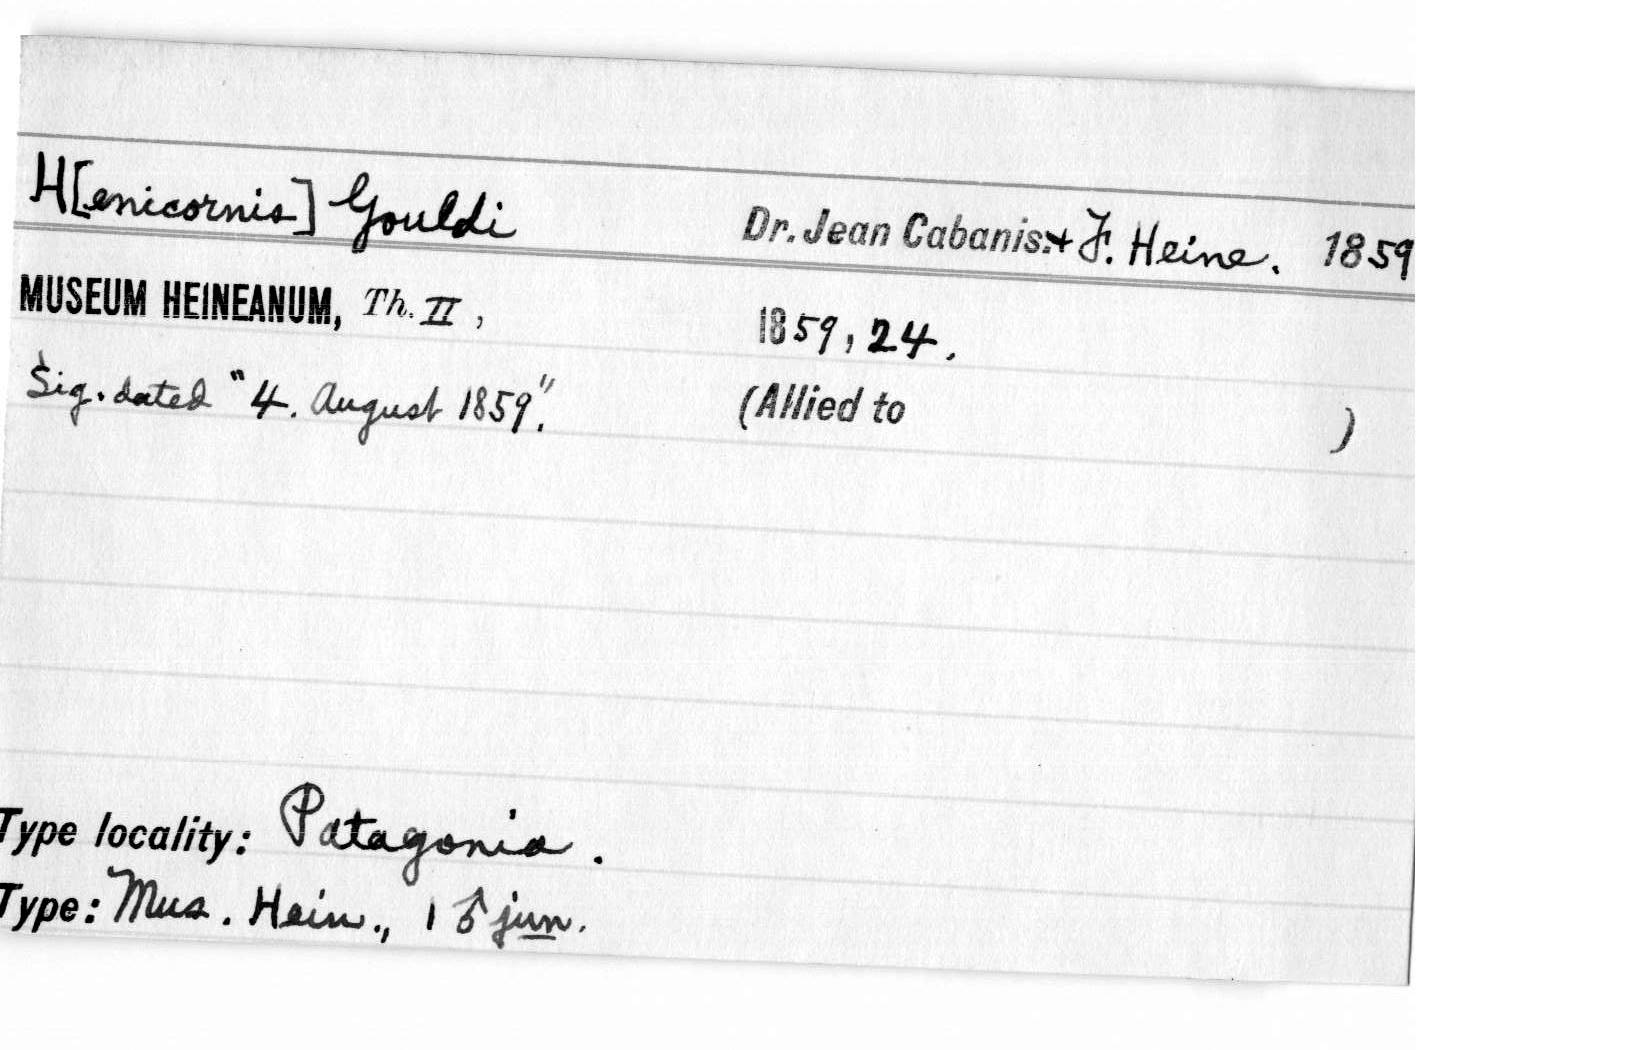 H[enicornis] Gouldi Dr. Jean Cabanis. + F. Heine. 1859
MUSEUM HEINEANUM, Th. II, 1859, 24.
Sig. dated "4. August 1859". (Allied to )
Type locality: Patagonia.
Type: Mus. Hein., 1 ♂ jun.